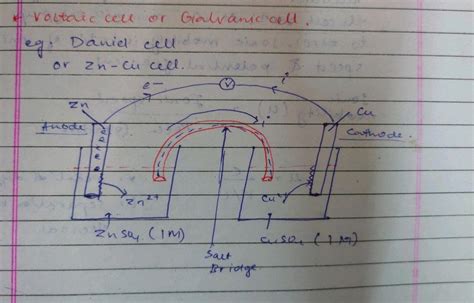 * Voltaic cell or Galvanic cell.
eg: Daniel cell
or Zn-Cu cell.
e⁻
V
i°
Zn
Cu
Anode
i°
Cathode.
Zn²⁺
Cu²⁺
ZnSO₄ (1M)
Salt
Bridge
CuSO₄ (1M)